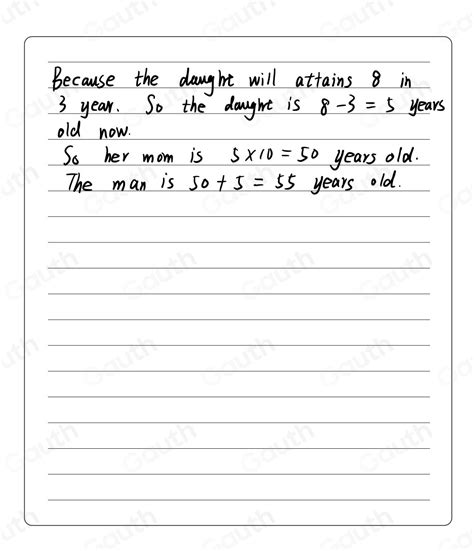 Because the daught will attains 8 in
3 year. So the daught is 8-3 = 5 years
old now.
So her mom is 5×10 = 50 years old.
The man is 50 + 5 = 55 years old.
Gauth